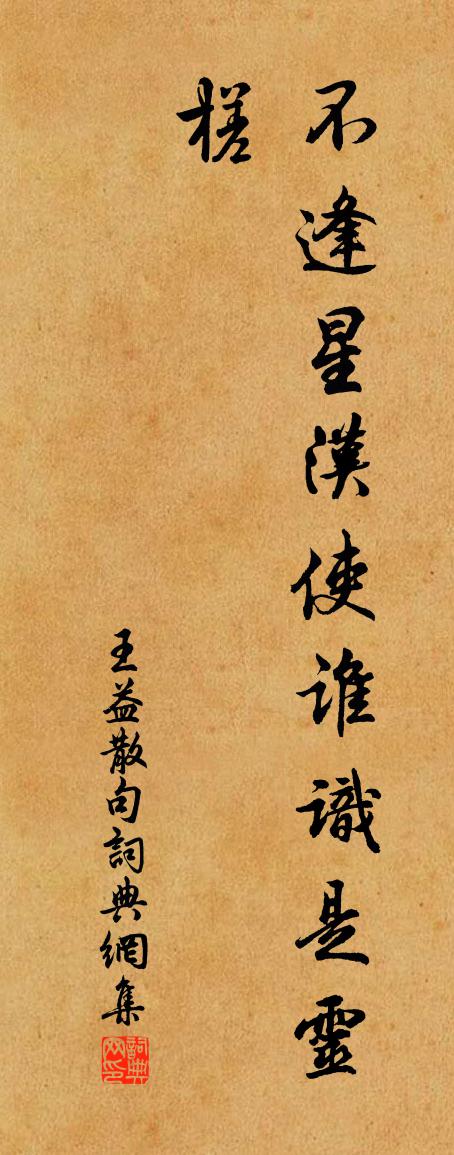 不逢星漢使誰識是靈
槎
王益散句詞典網集
詞典網印